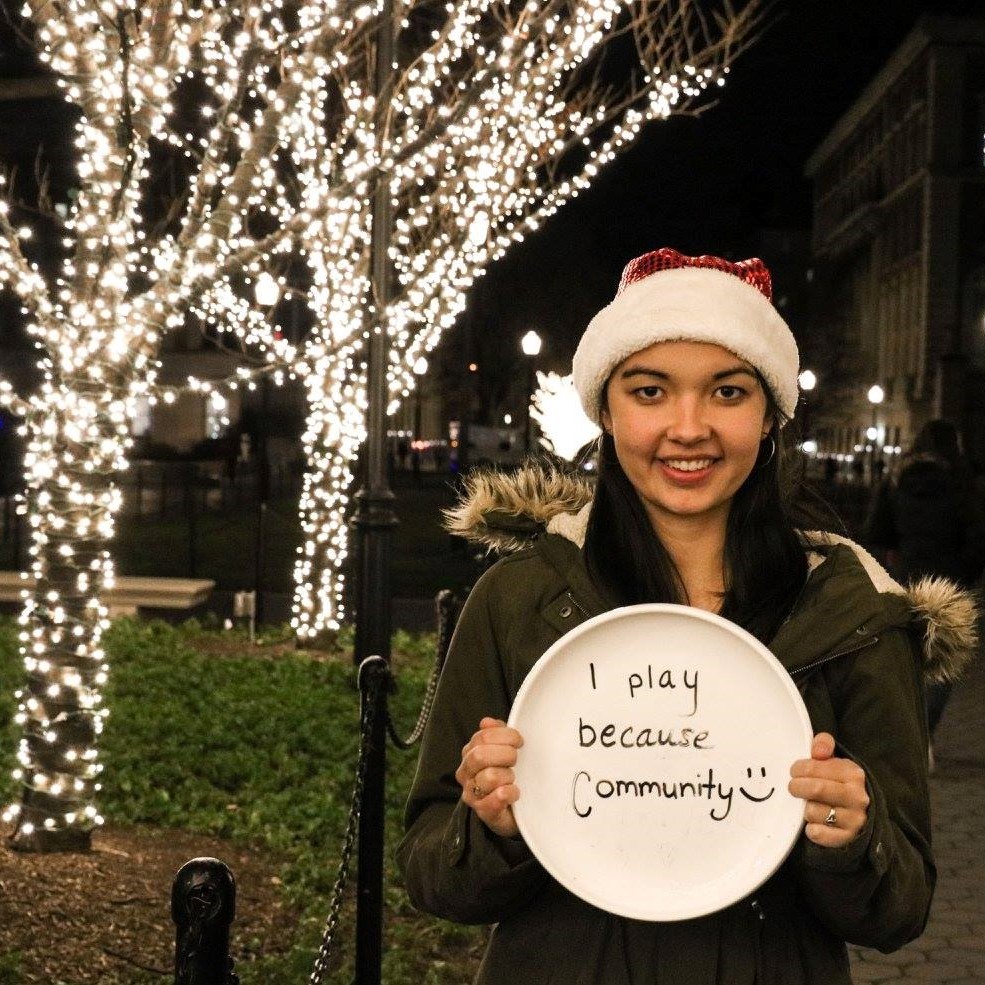 I play
because
Community :)